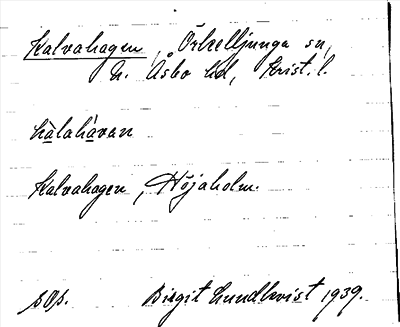 Kalvahagen, Örkelljunga sn,
N. Åsbo hd, Krist. l.
kalahavan
Kalvahagen, Höjaholm.
Birgit Lundkvist 1939.